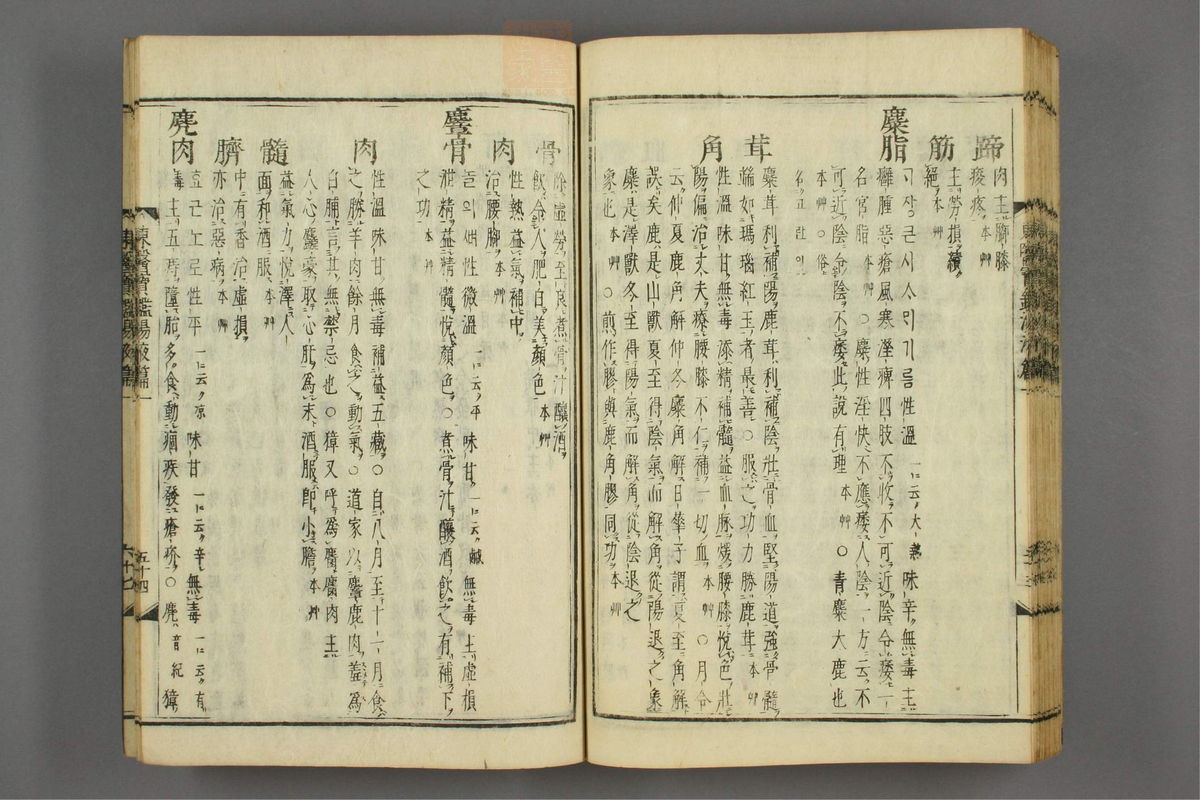 蹄 肉主脚膝
痠疼 本艸
筋 主勞損續
絕 本艸
麋脂 性溫 一云大熱 味辛無毒主
癰腫惡瘡風寒濕痺四肢不收不可近陰令痿一
名宮脂 本艸 ○麋性淫快不應痿人陰一方云不
可近陰令陰不痿此說有理 本艸 ○青麋大鹿也
本艸 ○俗
名고란이
茸 麋茸利補陽鹿茸利補陰壯骨血堅陽道強骨髓
端如瑪瑙紅玉者最善○服之功力勝鹿茸 本艸
角 性溫味甘無毒添精補髓益血脉煖腰膝悅色壯
陽偏治丈夫療腰膝不仁補一切血 本艸 ○月令
云仲夏鹿角解仲冬麋角解日華子謂夏至角解
誤矣鹿是山獸夏至得陰氣而解角從陽退之象
麋是澤獸冬至得陽氣而解角從陰退之
象也 本艸 ○煎作膠與鹿角膠同功 本艸
骨 除虛勞至良煮骨汁釀酒
飮令人肥白美顏色 本艸
肉 性熱益氣補中
治腰脚 本艸
麞骨 性微溫 一云平 味甘 一云鹹 無毒主虛損
泄精益精髓悅顏色○煮骨汁釀酒飮之有補下
之功 本艸
肉 性溫味甘無毒補益五藏○自八月至十一月食
之勝羊肉餘月食之動氣○道家以麞鹿肉羞爲
白脯言其無禁忌也○獐又呼爲麕麕肉主
人心麤豪取心肝爲末酒服卽小膽 本艸
髓 益氣力悅澤人
面和酒服 本艸
臍 中有香治虛損
亦治惡病 本艸
麂肉 性平 一云凉 味甘 一云辛 無毒 一云有
毒 主五痔墮胎多食動痼疾發瘡疥○麂 音紀 獐
東醫寶鑑湯液篇一
五十四
六十七